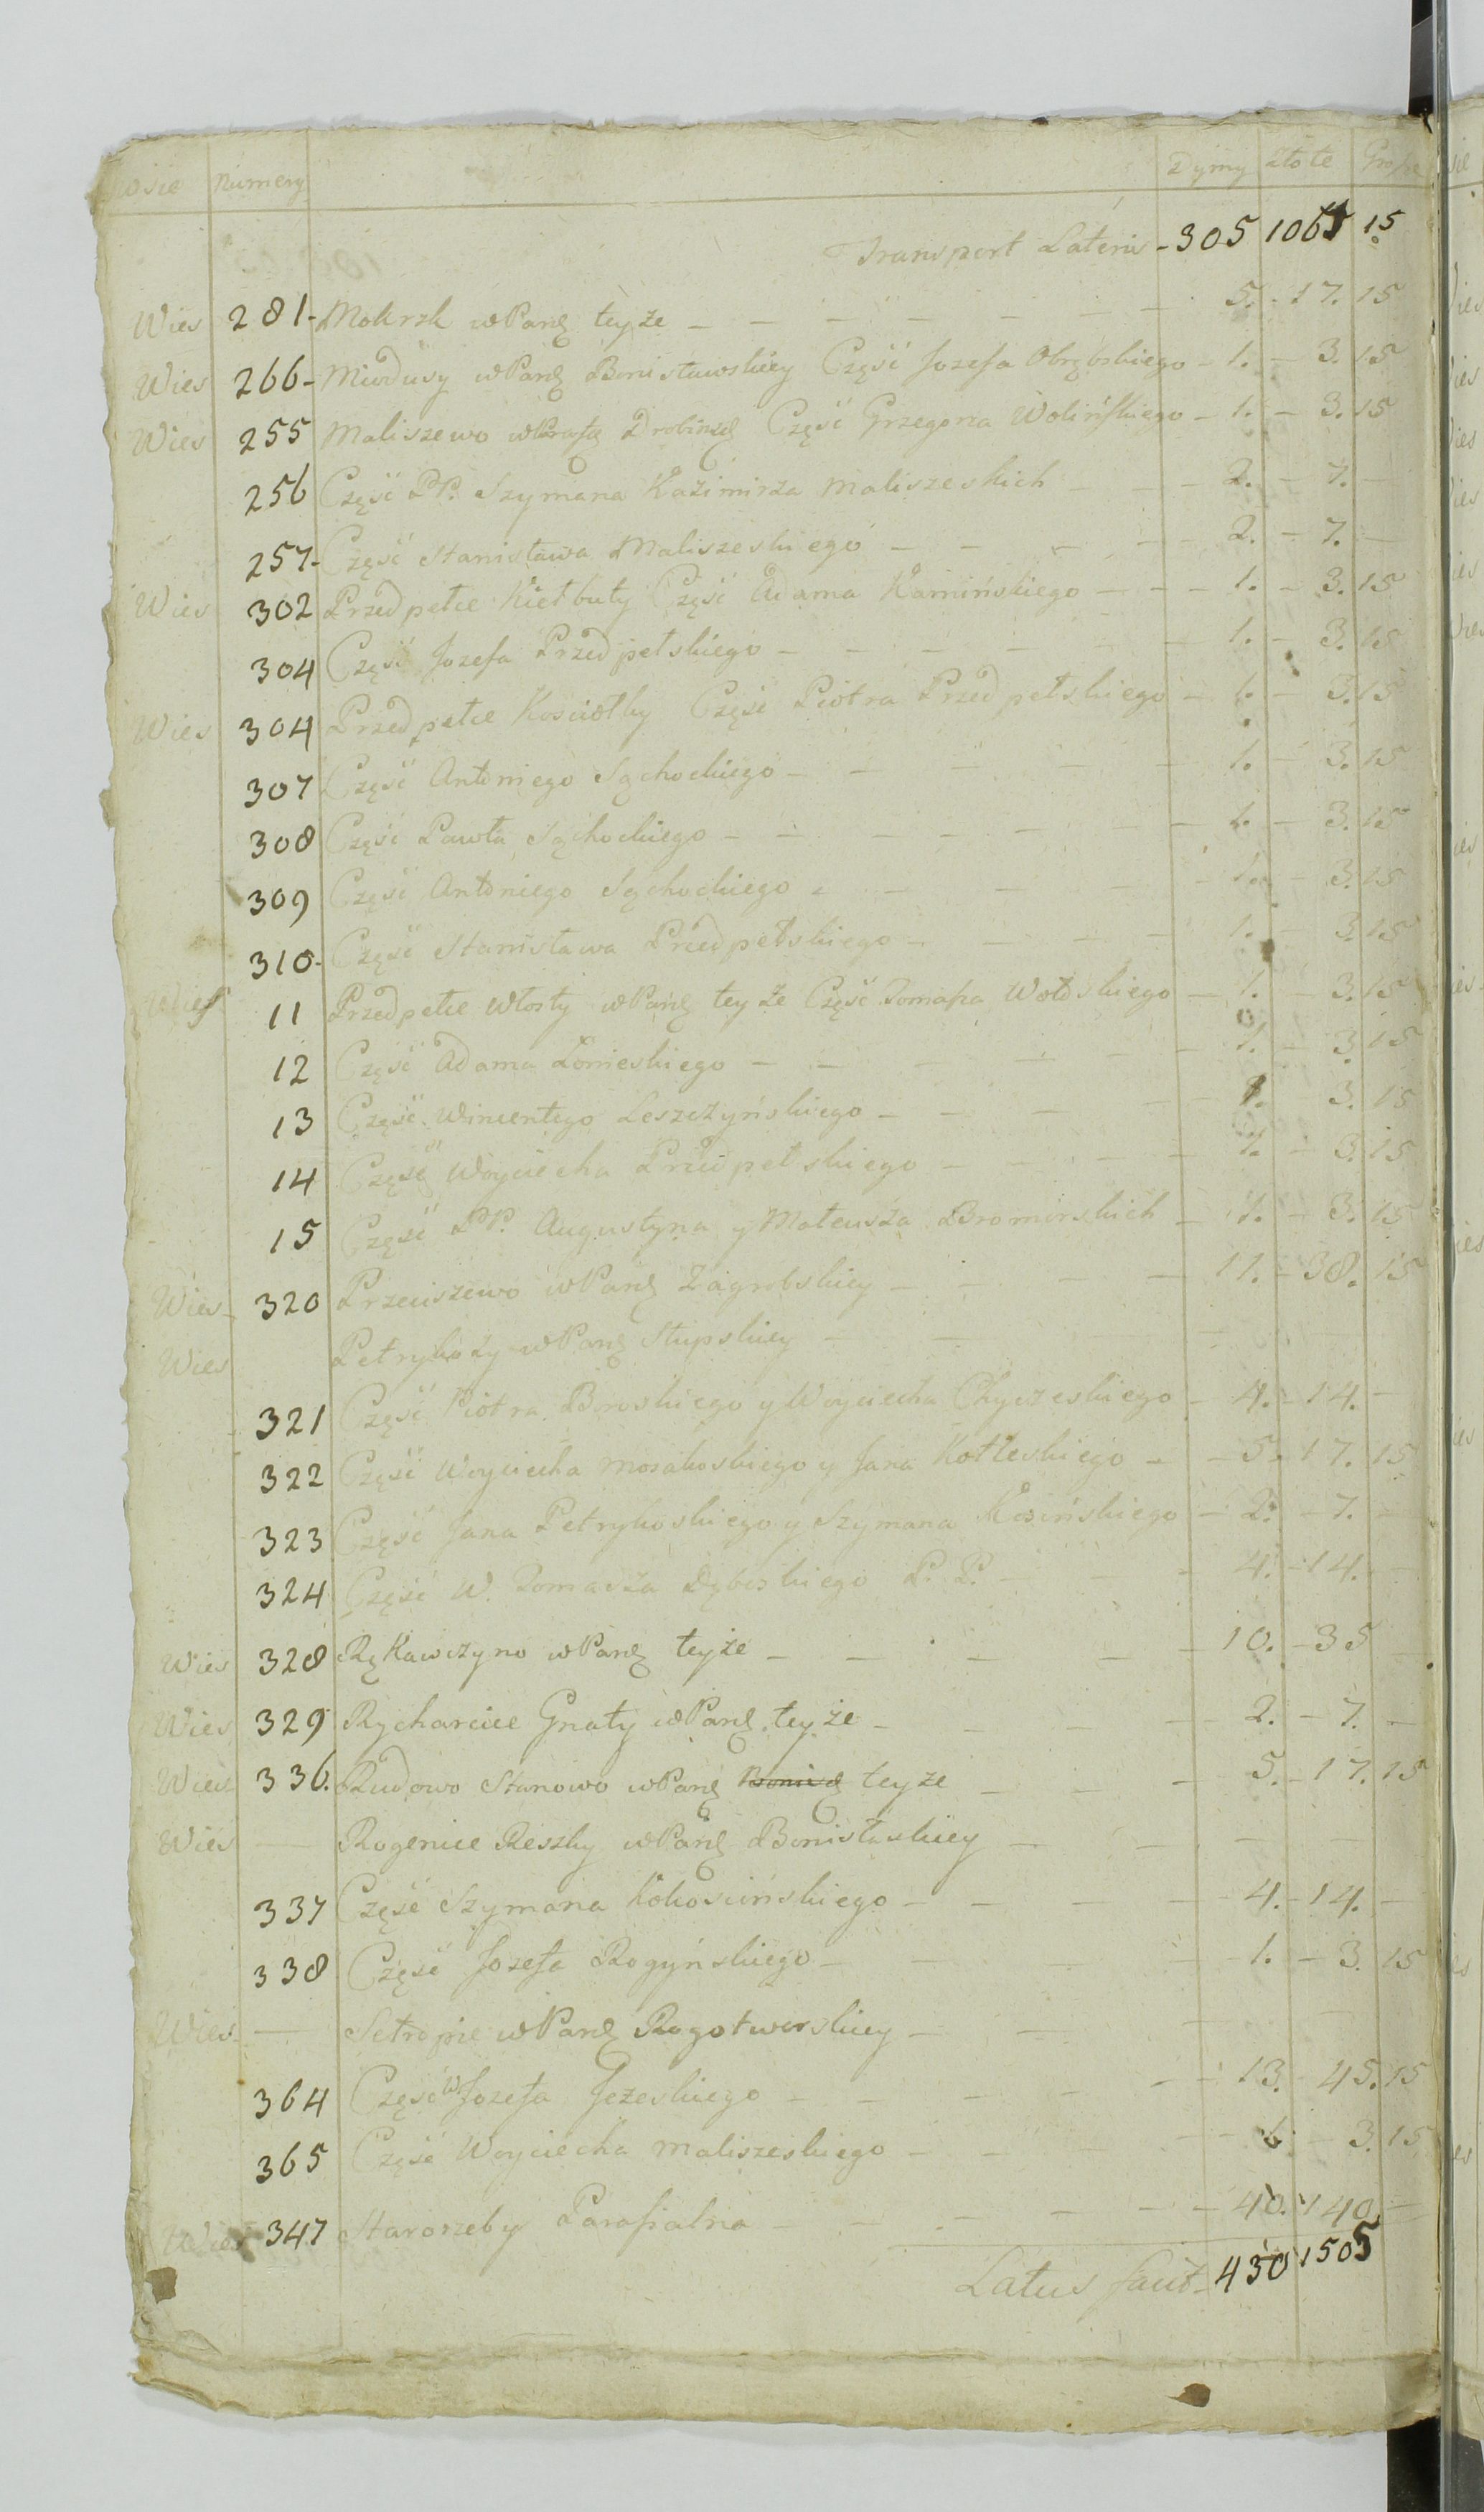 Wsie Numery Dymy Złote Grosze
Transport Lateris - 305 1067 15
Wies 281 - Mokrzk w Parą teyże — 5. - 17. 15
Wies 266 - Miodusy w Parą Bonisławskiey Część Jozefa Obrębskiego - 1. - 3. 15
Wies 255 Maliszewo w Parafą Drobinską Część Grzegorza Wolińskiego - 1. - 3. 15
256 Część PP. Szymana Kazimirza Maliszeskich — 2. - 7. —
257 - Część Stanisława Maliszeskiego — 2. - 7. —
Wies 302 Przedpełce Kiełbuty Część Adama Kamińskiego — 1. - 3. 15
304 Część Jozefa Przedpełskiego — 1. - 3. 15
Wies 304 Przedpełce Kosciołky Część Piotra Przedpełskiego - 1. - 3. 15
307 Część Antoniego Sąchockiego — 1. - 3. 15
308 Część Pawła Sąchockiego — 1. - 3. 15
309 Część Antoniego Sąchockiego — 1. - 3. 15
310 - Część Stanisława Przedpełskiego — 1. - 3. 15
Wies 11 Przedpełce Włosty w Parą teyże Część Tomasza Wołdskiego - 1. - 3. 15
12 Część Adama Łonieskiego — 1. - 3. 15
13 Część Wincentego Leszczyńskiego — 1. - 3. 15
14 Część Woyciecha Przedpełskiego — 1. - 3. 15
15 Część PP. Augustyna y Mateusza Bromirskich - 1. - 3. 15
Wies - 320 Przeciszewo w Parą Zagrobskiey — 11. - 38. 15
Wies Petrykozy w Parą Słupskiey —
321 Część Piotra Broskiego y Woyciecha Chyczeskiego - 4. - 14. —
322 Część Woyciecha Mosakoskiego y Jana Kotleskiego - 5. 17. 15
323 Część Jana Petrykoskiego y Szymana Kosińskiego - 2. - 7. —
324 Część W. Tomasza Dęboskiego P. P. — 4. - 14. —
Wies 328 Rękawczyno w Parą teyże — 10. - 35 —
Wies 329 Rycharcice Gnaty w Parą teyże — 2. - 7. —
Wies 336. Rudowo Stanowo w Parą teyze — 5. - 17. 15
Wies — Rogenice Reszky w Parą Bonisłaskiey —
337 Część Szymana Kokoscińskiego — 4. - 14. —
338 Część Jozefa Rogyńskiego — 1. - 3. 15
Wies - — Setropie w Parą Rogotworskiey —
364 Część W Jozefa Jezeskiego — 13. 45. 15
365 Część Woyciecha Maliszeskiego — 1. - 3. 15
Wies 347 Starorzeby Parafialna — 40. 140. —
Latus facit - 430 1505